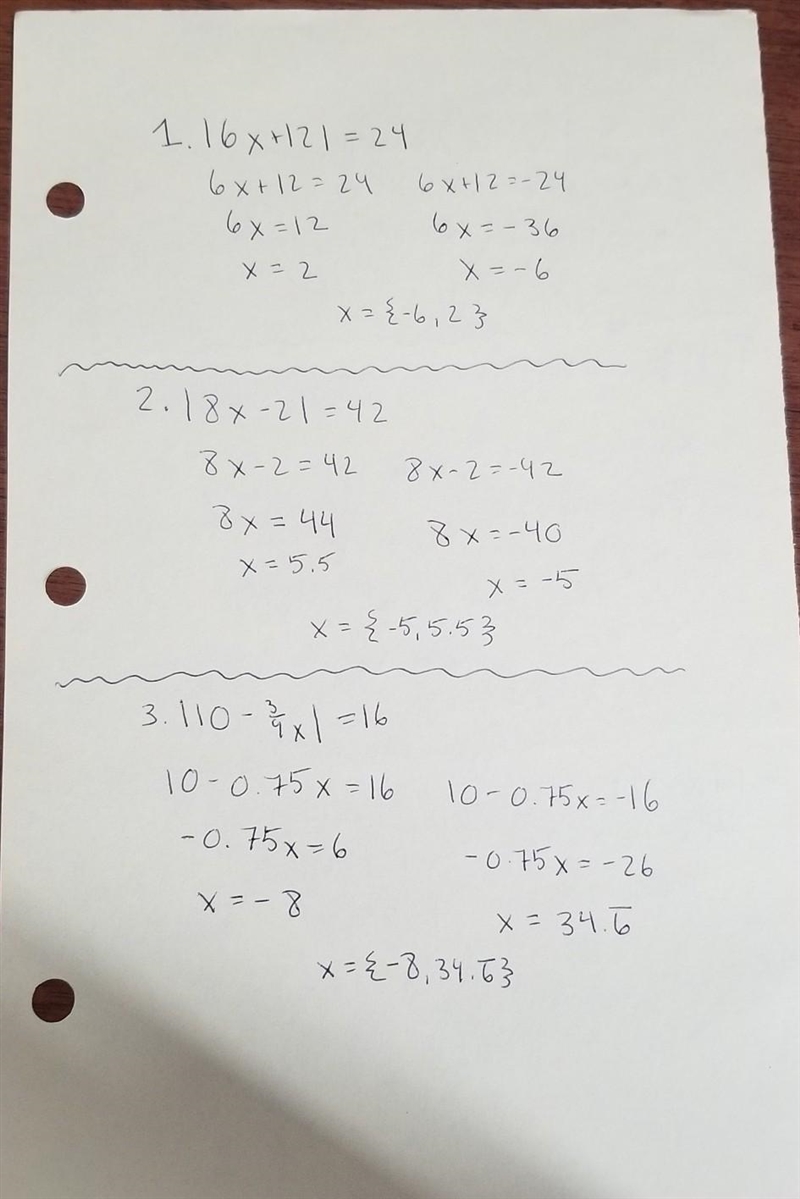 1. |6x+12| = 24
6x+12 = 24 6x+12 = -24
6x = 12 6x = -36
x = 2 x = -6
x = {-6, 2}
2. |8x-2| = 42
8x-2 = 42 8x-2 = -42
8x = 44 8x = -40
x = 5.5 x = -5
x = {-5, 5.5}
3. |10 - 3/4x| = 16
10-0.75x = 16 10-0.75x = -16
-0.75x = 6 -0.75x = -26
x = -8 x = 34.6̅
x = {-8, 34.6̅}